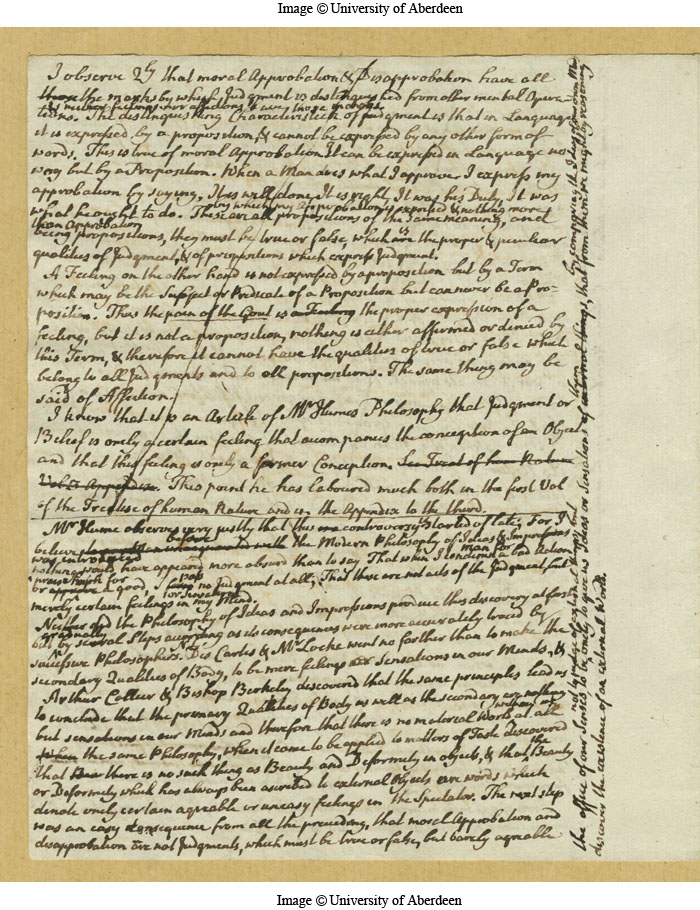 Image © University of Aberdeen
I observe 2ly that moral Approbation & Disapprobation have all
the marks by which Judgment is distinguished from other mental Opera
tions. The distinguishing Characteristick of Judgment is that in Language
it is expressed by a proposition, & cannot be expressed by any other form of
words. This is true of moral Approbation It can be expressed in Language no
way but by a Proposition. When a Man does what I approve I express my
approbation by saying, It is well done, It is right, It was his Duty, It was
what he ought to do. These are all propositions of the same meaning, and
by which my approbation is expressed & nothing more
than Approbation
being propositions, they must be true or false, which is the proper & peculiar
qualities of Judgment, & of propositions which express Judgment.
A Feeling on the other hand is not expressed by a proposition but by a Term
which may be the Subject or Predicate of a Proposition but can never be a Pro-
position. Thus the pain of the Gout is the proper expression of a
feeling, but it is not a proposition, nothing is either affirmed or denied by
this Term, & therefore it cannot have the qualities of true or false which
belong to all Judgments and to all propositions. The same thing may be
said of Affection.
I know that it is an Article of Mr Humes Philosophy that Judgment or
Belief is onely a certain feeling that accompanies the conception of an Object
and that this feeling is onely a firmer Conception. See Treat of hum Nature
This point he has laboured much both in the first Vol
of the Treatise of human Nature and in the Appendix to the third.
Mr Hume observes very justly that this controversy Started of late, For I
believe before the Modern Philosophy of Ideas & Impressions
was introduced
nothing would have appeared more absurd than to say That when I condemn a man for a bad Action
or praise him for a good, I pass no Judgment at all, That these are not acts of the Judgment, but
merely certain feelings in my Mind.
Neither did the Philosophy of Ideas and Impressions produce this discovery at first
but gradually by several Steps according as its consequences were more accurately traced by
successive Philosophers. Des Cartes & Mr Locke went no farther than to make the
secondary Qualities of Body, to be mere feelings or Sensations in our Minds, &
Arthur Collier & Bishop Berkeley discovered that the same principles lead us
to conclude that the primary Qualities of Body as well as the secondary are nothing
but sensations in our Minds and therefore that there is no material World at all
the same Philosophy, when it came to be applied to matters of Taste discovered
that there is no such thing as Beauty and Deformity in objects, & that the Beauty
or Deformity which has always been ascribed to external Objects are words which
denote onely certain agreable or uneasy feelings in the Spectator. The next step
was an easy consequence from all the preceeding, that moral Approbation and
disapprobation are not Judgments, which must be true or false, but barely agreable
the office of our Senses to be onely to give us Ideas or Sensations of external things, that from them we might by reasoning
discover the existence of an external World.
Image © University of Aberdeen